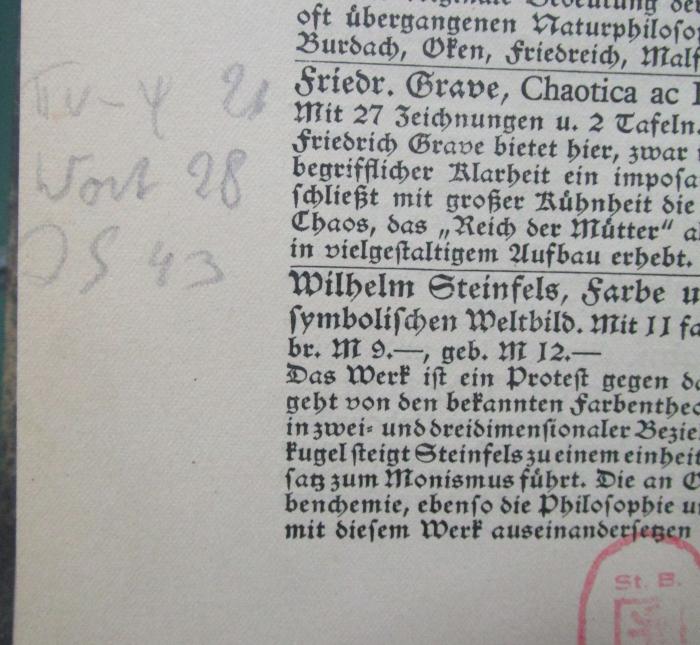 oft übergangenen Naturphiloso
Burdach, Oken, Friedreich, Malf
Friedr. Grave, Chaotica ac
Mit 27 Zeichnungen u. 2 Tafeln.
Friedrich Grave bietet hier, zwar
begrifflicher Klarheit ein imposa
schließt mit großer Kühnheit die
Chaos, das „Reich der Mütter“ a
in vielgestaltigem Aufbau erhebt.
Wilhelm Steinfels, Farbe u
symbolischen Weltbild. Mit 11 fa
br. M 9.—, geb. M 12.—
Das Werk ist ein Protest gegen d
geht von den bekannten Farbentheo
in zwei- und dreidimensionaler Bezie
kugel steigt Steinfels zu einem einheit
satz zum Monismus führt. Die an O
benchemie, ebenso die Philosophie u
mit diesem Werk auseinandersetzen
Wort 28
43
St. B.